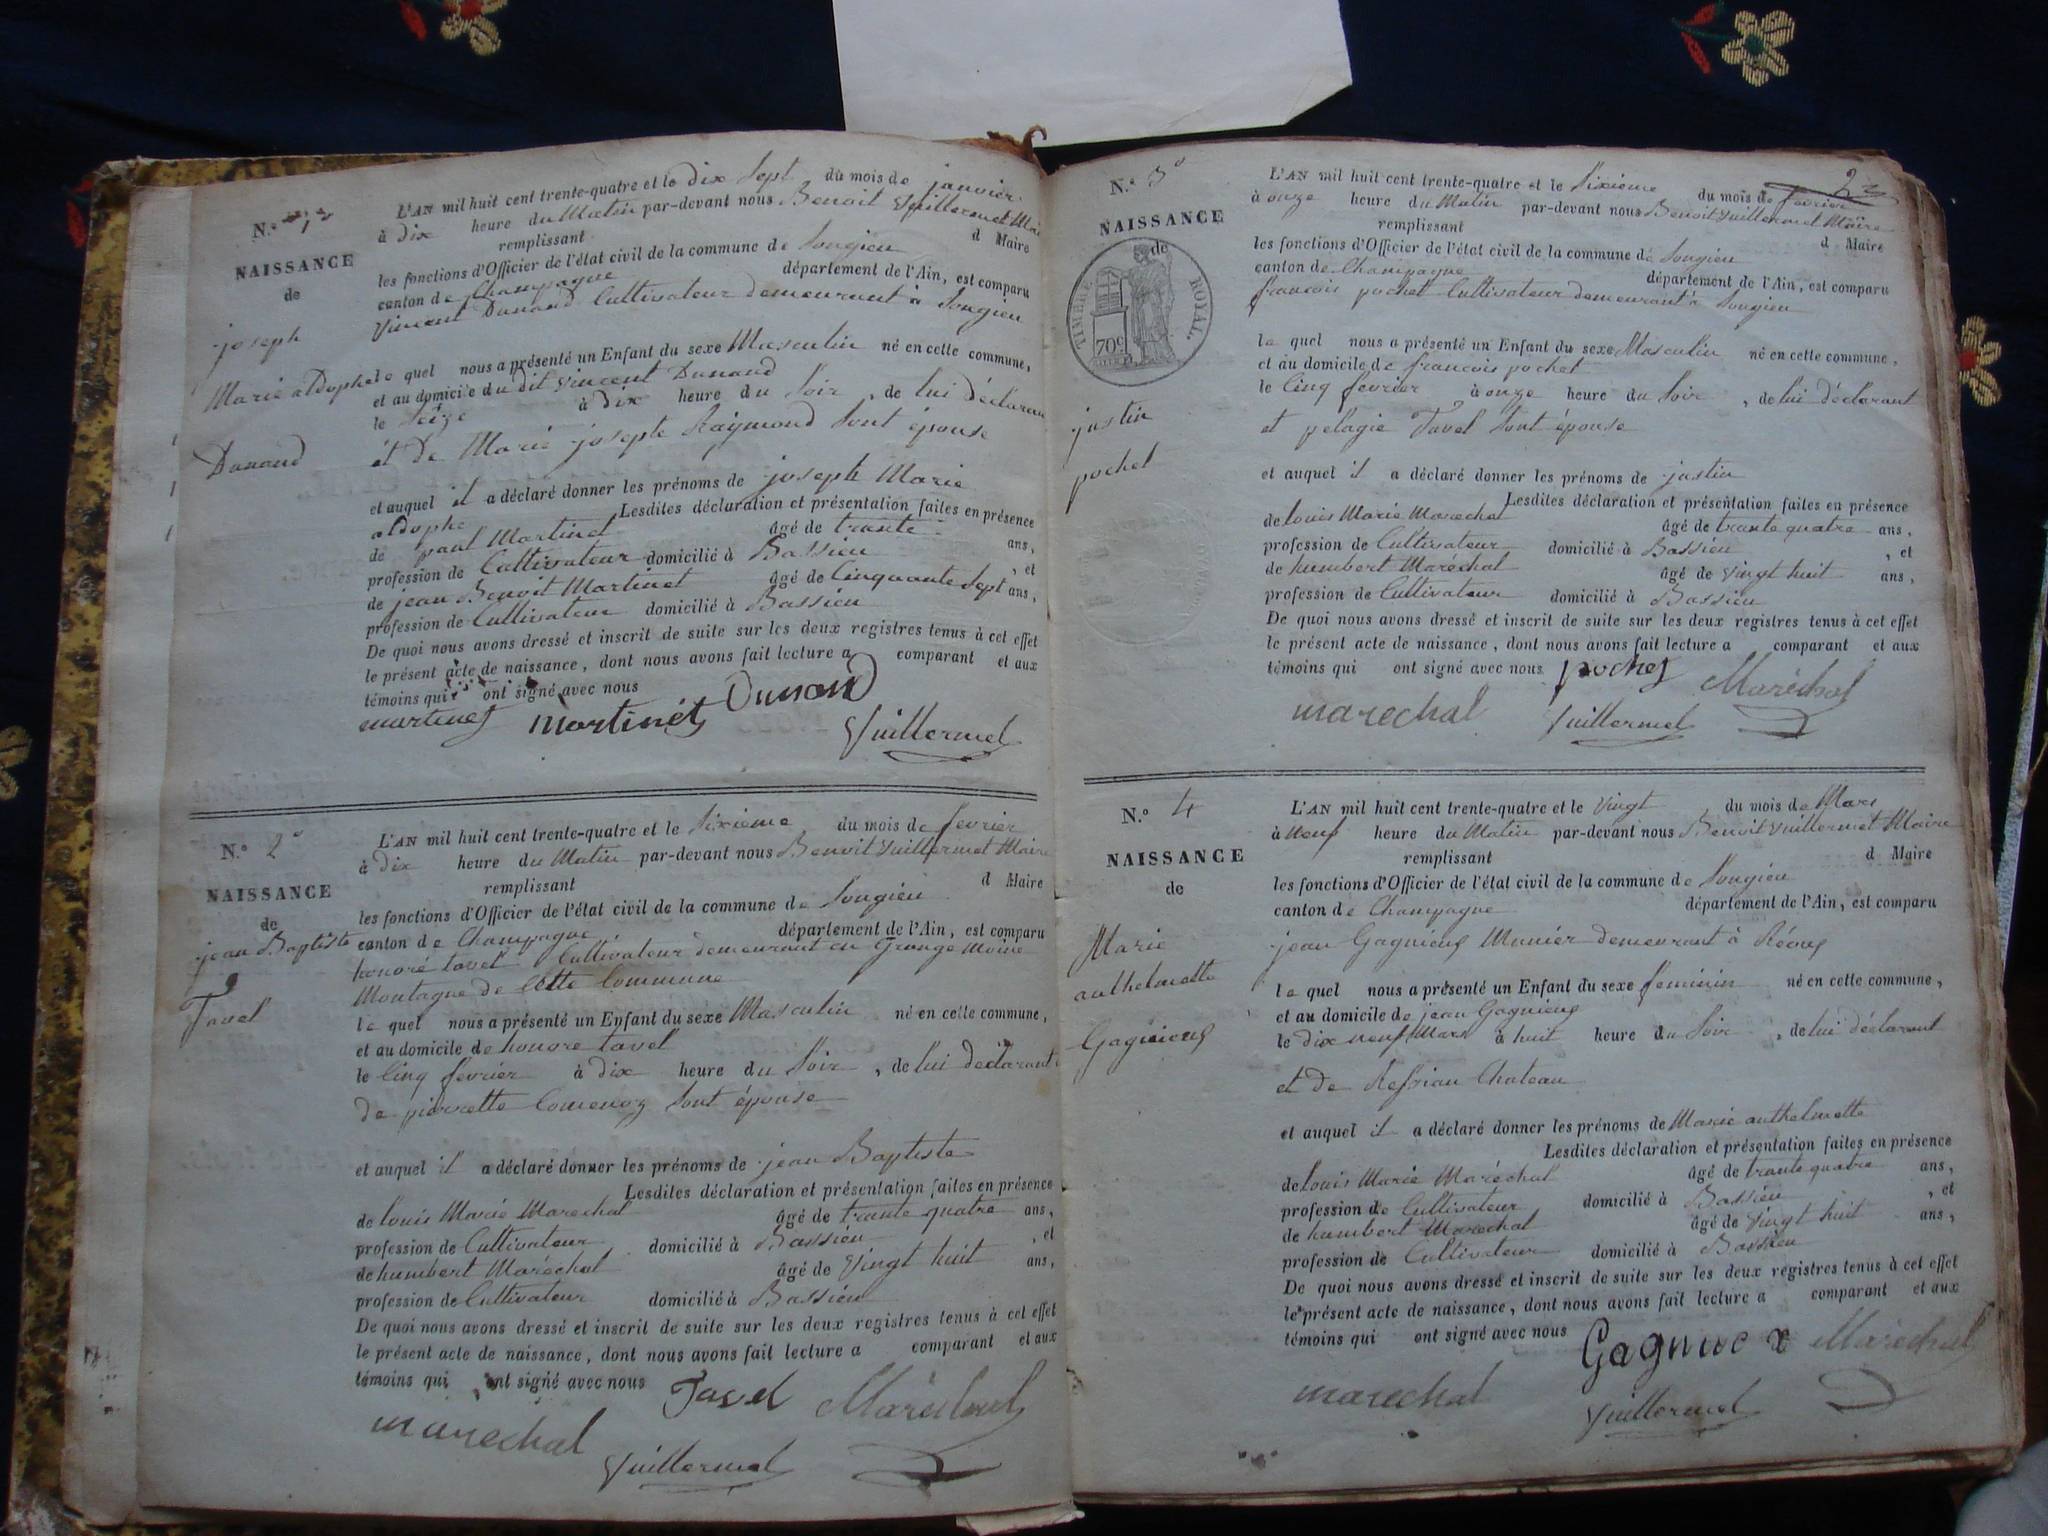 N.° 1
NAISSANCE
de
joseph
Marie aldophe
Dunand
L'AN mil huit cent trente-quatre et le dix sept du mois de janvier
à dix heure du Matin par-devant nous Benoit Vuillermet Maire
remplissant d Maire
les fonctions d'Officier de l'état civil de la commune de Songieu
canton de Champagne département de l'Ain, est comparu
Vincent Dunand Cultivateur demeurant à Songieu
le quel nous a présenté un Enfant du sexe Masculin né en cette commune,
et au domicile du dit Vincent Dunand
le seize à dix heure du soir , de lui déclarant
et de Marie josephe Raymond sont épouse
et auquel il a déclaré donner les prénoms de joseph Marie
aldophe Lesdites déclaration et présentation faites en présence
de paul Martinet âgé de trante ans,
profession de Cultivateur domicilié à Bassieu , et
de jean Benoit Martinet âgé de Cinquante sept ans,
profession de Cultivateur domicilié à Bassieu
De quoi nous avons dressé et inscrit de suite sur les deux registres tenus à cet effet
le présent acte de naissance, dont nous avons fait lecture a comparant et aux
témoins qui ont signé avec nous
martinet martinet Dunand
Vuillermet
N.° 2°
NAISSANCE
de
jean Baptiste
Tavel
L'AN mil huit cent trente-quatre et le sixieme du mois de fevrier
à dix heure du Matin par-devant nous Benoit Vuillermet Maire
remplissant d Maire
les fonctions d'Officier de l'état civil de la commune de Songieu
canton de Champagne département de l'Ain, est comparu
honoré tavel Cultivateur demeurant en Grange Moine
Montagne de cette Commune
le quel nous a présenté un Enfant du sexe Masculin né en cette commune,
et au domicile de honore tavel
le Cinq fevrier à dix heure du soir , de lui déclarant
de pierrette sont épouse
et auquel il a déclaré donner les prénoms de jean Baptiste
Lesdites déclaration et présentation faites en présence
de louis Marie Marechal âgé de trante quatre ans,
profession de Cultivateur domicilié à Bassieu , et
de humbert Maréchal âgé de Vingt huit ans,
profession de Cultivateur domicilié à Bassieu
De quoi nous avons dressé et inscrit de suite sur les deux registres tenus à cet effet
le présent acte de naissance, dont nous avons fait lecture a comparant et aux
témoins qui ont signé avec nous Tavel Maréchal
marechal
Vuillermet
2
N.° 3°
NAISSANCE
de
TIMBRE ROYAL.
70c
justin
pochet
L'AN mil huit cent trente-quatre et le sixieme du mois de fevrier
à onze heure du Matin par-devant nous Benoit Vuillermet Maire
remplissant d Maire
les fonctions d'Officier de l'état civil de la commune de Songieu
canton de Champagne département de l'Ain, est comparu
francois pochet Cultivateur demeurant à Songieu
le quel nous a présenté un Enfant du sexe Masculin né en cette commune,
et au domicile de francois pochet
le Cinq fevrier à onze heure du soir , de lui déclarant
et pelagie Tavel sont épouse
et auquel il a déclaré donner les prénoms de justin
Lesdites déclaration et présentation faites en présence
de louis Marie Marechal âgé de trante quatre ans,
profession de Cultivateur domicilié à Bassieu , et
de humbert Maréchal âgé de Vingt huit ans,
profession de Cultivateur domicilié à Bassieu
De quoi nous avons dressé et inscrit de suite sur les deux registres tenus à cet effet
le présent acte de naissance, dont nous avons fait lecture a comparant et aux
témoins qui ont signé avec nous pochet Maréchal
marechal Vuillermet
N.° 4
NAISSANCE
de
Marie
anthelmette
Gagnieux
L'AN mil huit cent trente-quatre et le Vingt du mois de Mars
à neuf heure du Matin par-devant nous Benoit Vuillermet Maire
remplissant d Maire
les fonctions d'Officier de l'état civil de la commune de Songieu
canton de Champagne département de l'Ain, est comparu
jean Gagnieux Munier demeurant à
le quel nous a présenté un Enfant du sexe feminin né en cette commune,
et au domicile de jean Gagnieux
le dix neuf Mars à huit heure du soir , de lui déclarant
et de Chateau
et auquel il a déclaré donner les prénoms de Marie anthelmette
Lesdites déclaration et présentation faites en présence
de louis Marie Maréchal âgé de trante quatre ans,
profession de Cultivateur domicilié à Bassieu , et
de humbert Marechal âgé de Vingt huit ans,
profession de Cultivateur domicilié à Bassieu
De quoi nous avons dressé et inscrit de suite sur les deux registres tenus à cet effet
le présent acte de naissance, dont nous avons fait lecture a comparant et aux
témoins qui ont signé avec nous Maréchal
marechal Vuillermet